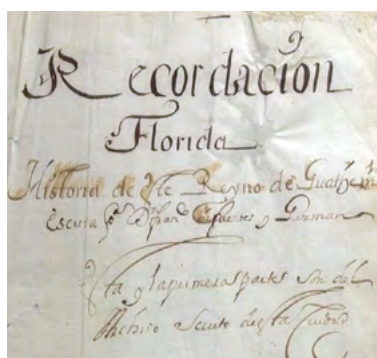 Recordacion
Florida
Historia de este Reyno de Guathema
Escrita p.r D.n fran.co fuentes y Guzman
Esta y la primera parte son del
Archivo Secreto desta Ciudad